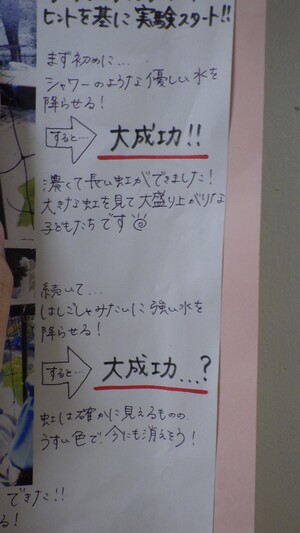 ヒントを基に実験スタート!!
まず初めに…
シャワーのような優しい水を
降らせる!
すると…
大成功!!
濃くて長い虹ができました!
大きな虹を見て大盛り上がりな
子どもたちです
続いて…
はしごしゃみたいに強い水を
降らせる!
すると…
大成功…?
虹は確かに見えるものの、
うすい色で、今にも消えそう!
できた!!
る!